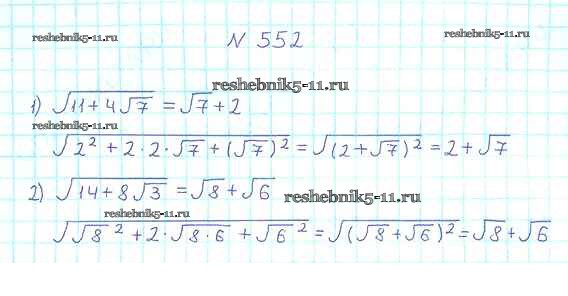 reshebnik5-11.ru
N 552
reshebnik5-11.ru
reshebnik5-11.ru
1) √(11 + 4√7) = √7 + 2
reshebnik5-11.ru
√(2² + 2 · 2 · √7 + (√7)²) = √((2 + √7)²) = 2 + √7
2) √(14 + 8√3) = √8 + √6
reshebnik5-11.ru
reshebnik5-11.ru
√(√8² + 2 · √(8 · 6) + √6²) = √((√8 + √6)²) = √8 + √6